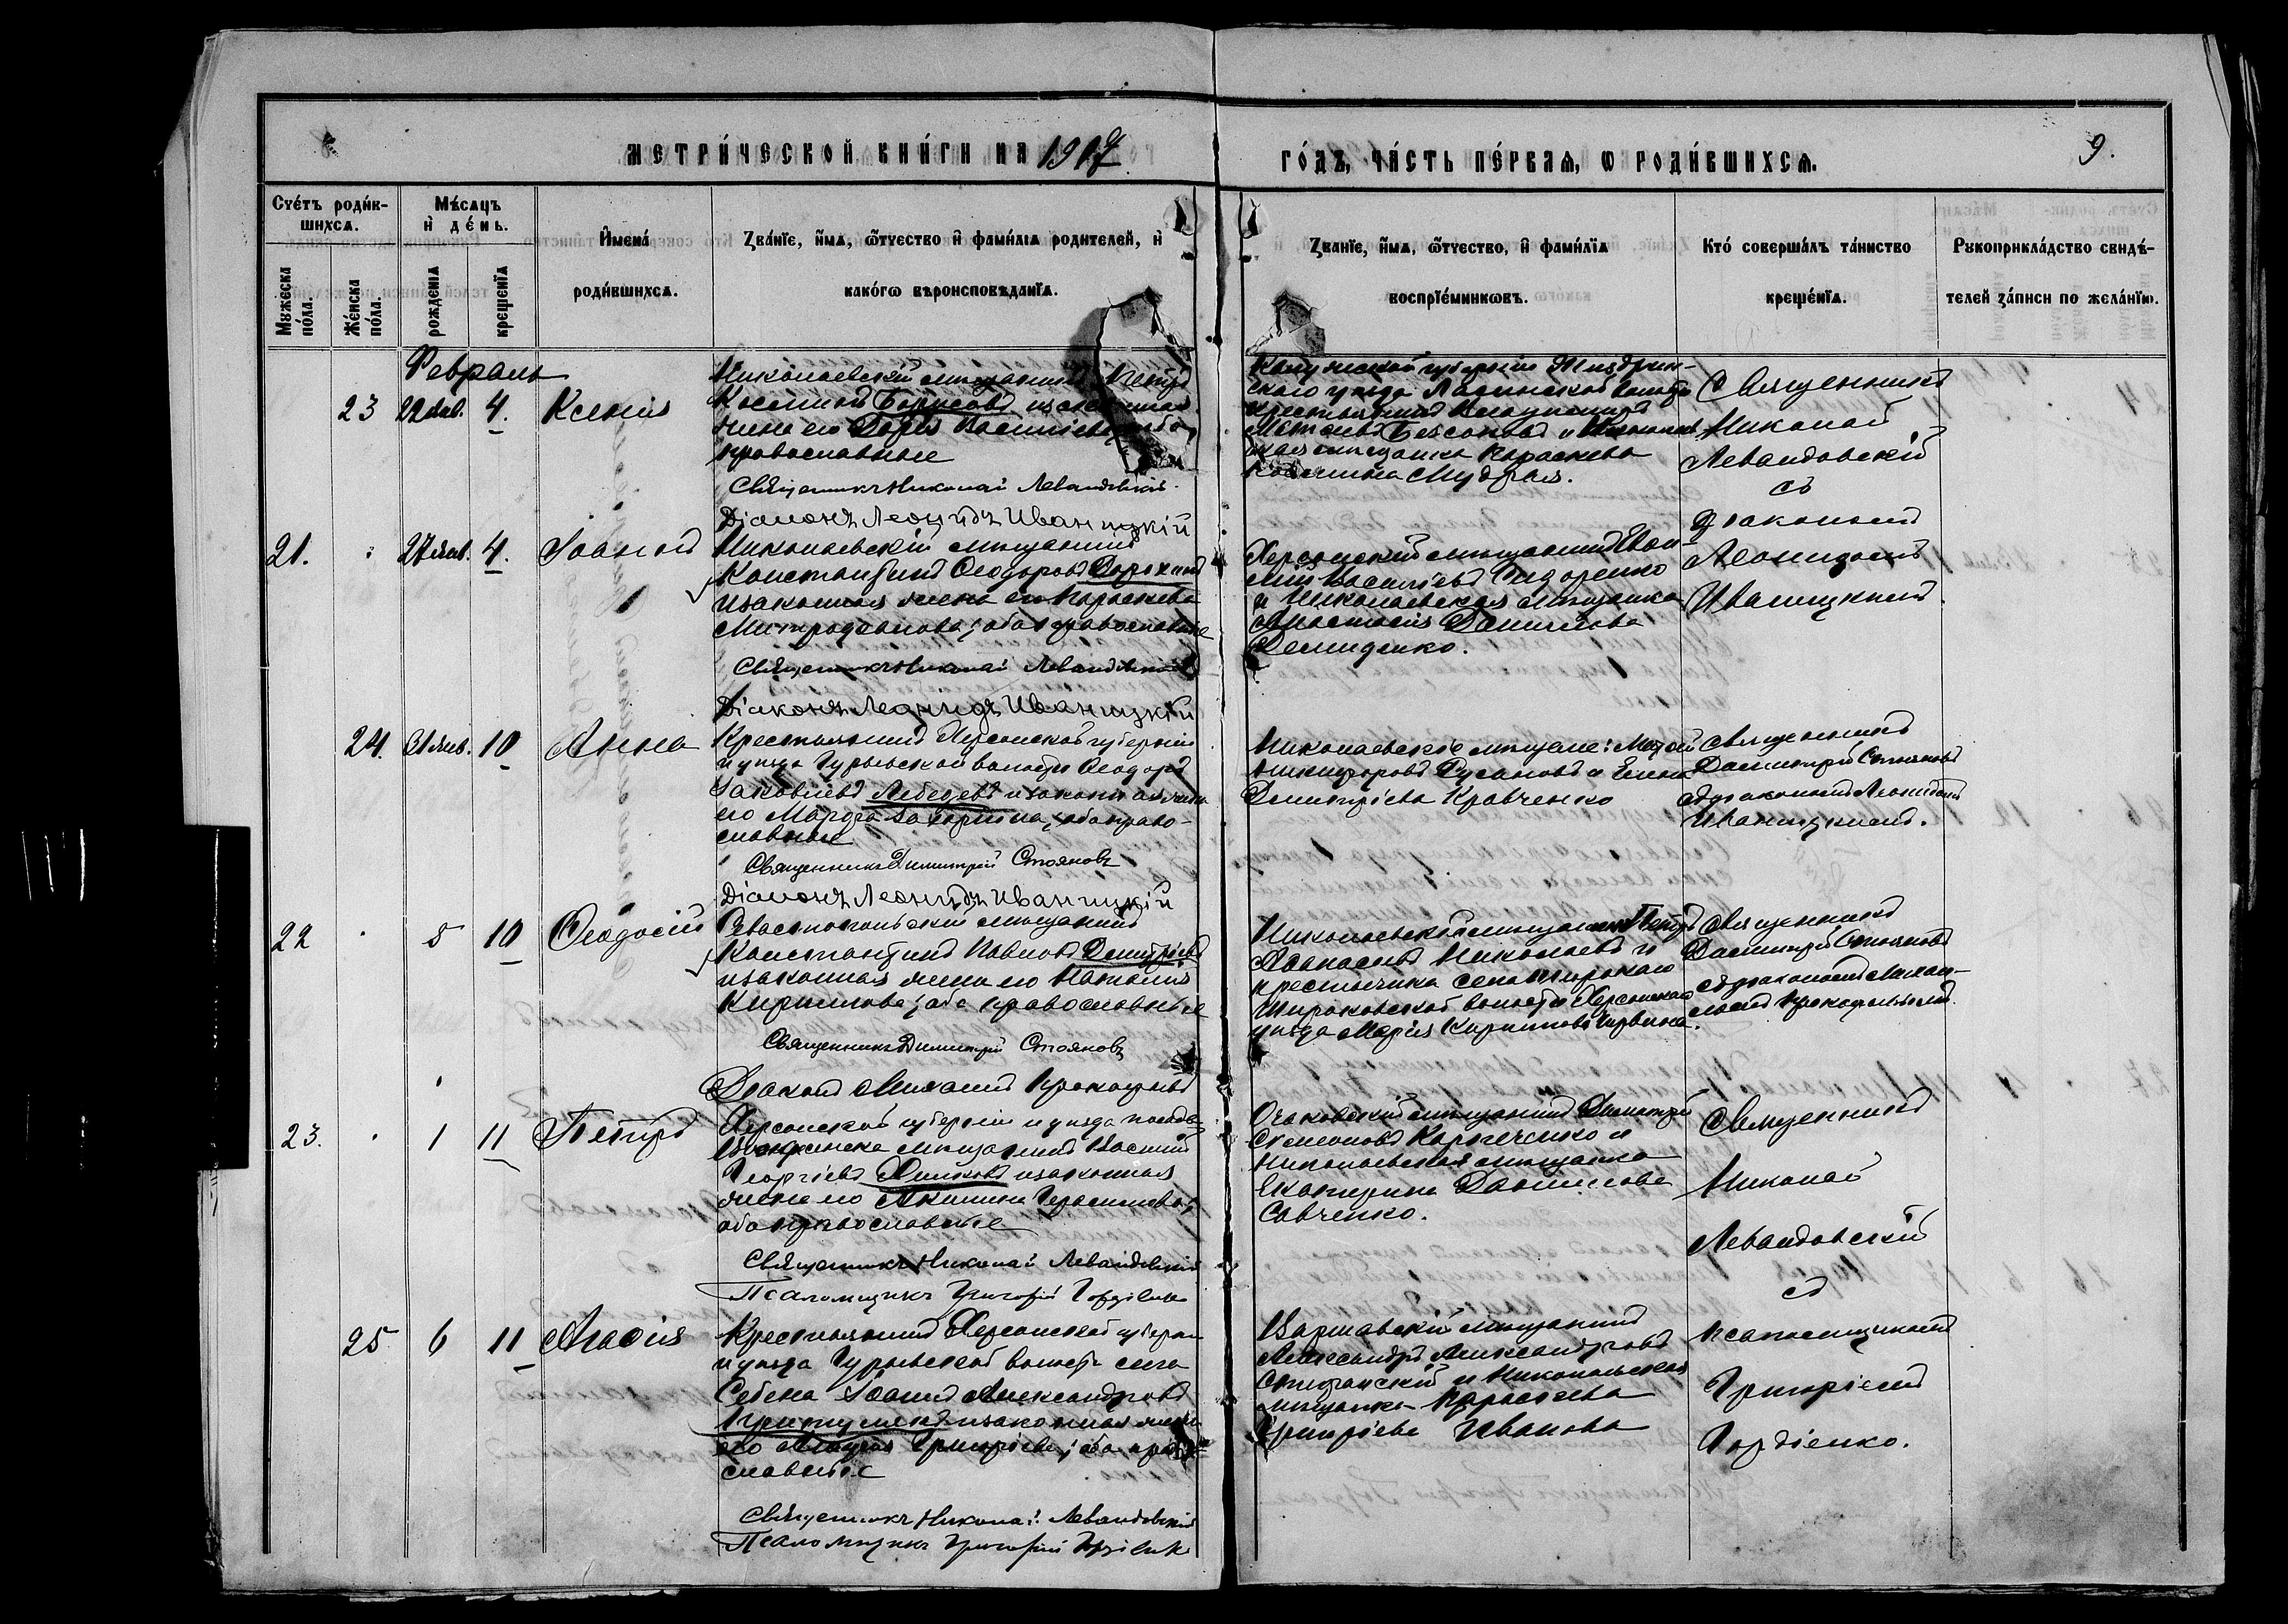 МЕТРИ́ЧЕСКОЙ КНИ́ГИ НА 1917
ГО́ДЪ, ЧА́СТЬ ПЕ́РВАѦ, Ѡ РОДИ́ВШИХСѦ.
9.
Счéтъ роди́в-
шихсѧ.
Мѣ́сѧцъ
и҆ де́нь.
И҆мена́
роди́вшихсѧ.
Зва́нїе, и҆́мѧ, ѻ҆́тчество и҆ фами́лїѧ роди́телей, и҆
како́гѡ вѣроисповѣ́данїѧ.
Зва́нїе, и҆́мѧ, ѻ҆́тчество, и҆ фами́лїѧ
воспрїе́мникѡвъ.
Кто̀ соверша́лъ та́инство
креще́нїѧ.
Рукоприкла́дство свидѣ́-
телей за́писи по жела́нїю.
Мужеска
по́ла.
Же́нска
по́ла.
рожденїѧ
крещенїѧ
Февраль
23 22 янв. 4. Ксенія
Николаевскій мѣщанинъ Петръ
Борисовъ
жена его Дарія Василіева
православные
Священникъ Николай Левандовскій
Діаконъ Леонидъ Иваницкій
Калужской губерніи Жиздрин-
скаго уѣзда
крестьянинъ
мѣщанка Параскева
Мудрая.
Священникъ
Николай
Левандовскій
съ
діакономъ
Леонидомъ
Иваницкимъ
21. 27 янв. 4. Іоаннъ
Николаевскій мѣщанинъ
Константинъ Ѳеодоровъ
и законная жена его Параскева
Митрофанова, оба православные
Священникъ Николай Левандовскій
Діаконъ Леонидъ Иваницкій
Херсонскій мѣщанинъ
Василіевъ Сидоренко
и Николаевская мѣщанка
Анастасія
Демиденко.
24. 31 янв. 10 Анна
Крестьянинъ Херсонской губерніи
и уѣзда Гурьевской волости Ѳеодоръ
Іаковлевъ Лебедевъ и законная жена
его Марѳа
славные
Священникъ Димитрій Стояновъ
Діаконъ Леонидъ Иваницкій
Николаевскіе мѣщане:
Никифоровъ Русановъ и Елена
Димитріева Кравченко
Священникъ
Димитрій Стояновъ
съ діакономъ Леонидомъ
Иваницкимъ.
22 5 10 Ѳеодосій
Севастопольскій мѣщанинъ
Константинъ Павловъ
и законная жена его Наталія
Кириллова, оба православные
Священникъ Димитрій Стояновъ
Діаконъ Михаилъ Прокофьевъ
Николаевскій мѣщанинъ Петръ
Аѳанасьевъ Николаевъ и
крестьянка села Широкаго
Широковской волости Херсонскаго
уѣзда Марія Кириллова
Священникъ
Димитрій Стояновъ
съ діакономъ Михаи-
ломъ Прокофьевымъ.
23. 1 11 Петръ
Херсонской губерніи и уѣзда посада
Воскресенска мѣщанинъ Василій
Георгіевъ и законная
жена его Акилина Герасимова,
оба православные
Священникъ Николай Левандовскій
Псаломщикъ Григорій Гордіенко
Очаковскій мѣщанинъ Димитрій
Симеоновъ и
Николаевская мѣщанка
Екатерина Даніилова
Савченко.
Священникъ
Николай
Левандовскій
съ
псаломщикомъ
Григоріемъ
Гордіенко.
25 6 11 Агаѳія
Крестьянинъ Херсонской губерніи
и уѣзда Гурьевской волости села
Себена Іоаннъ Александровъ
и законная жена
его Григоріева, оба право-
славные
Священникъ Николай Левандовскій
Псаломщикъ Григорій Гордіенко
Варшавскій мѣщанинъ
Александръ Александровъ
и Николаевская
мѣщанка Параскева
Григоріева Иванова